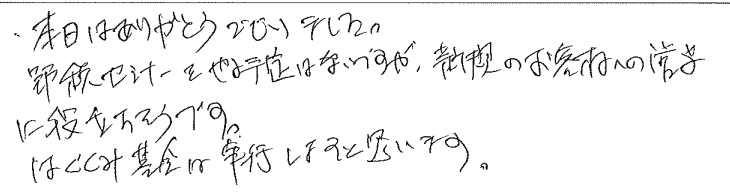 ・本日はありがとうございました。
野領セミナーをやる予定はないですが、新規のお客様への営業
に役立ちそうです。
はぐくみ基金は実行しようと思います。